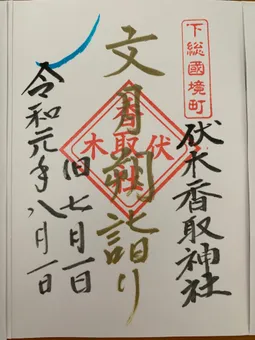 下総國境町
伏木香取神社
文月朔詣り
伏木
香取
社
旧七月一日
令和元年八月一日